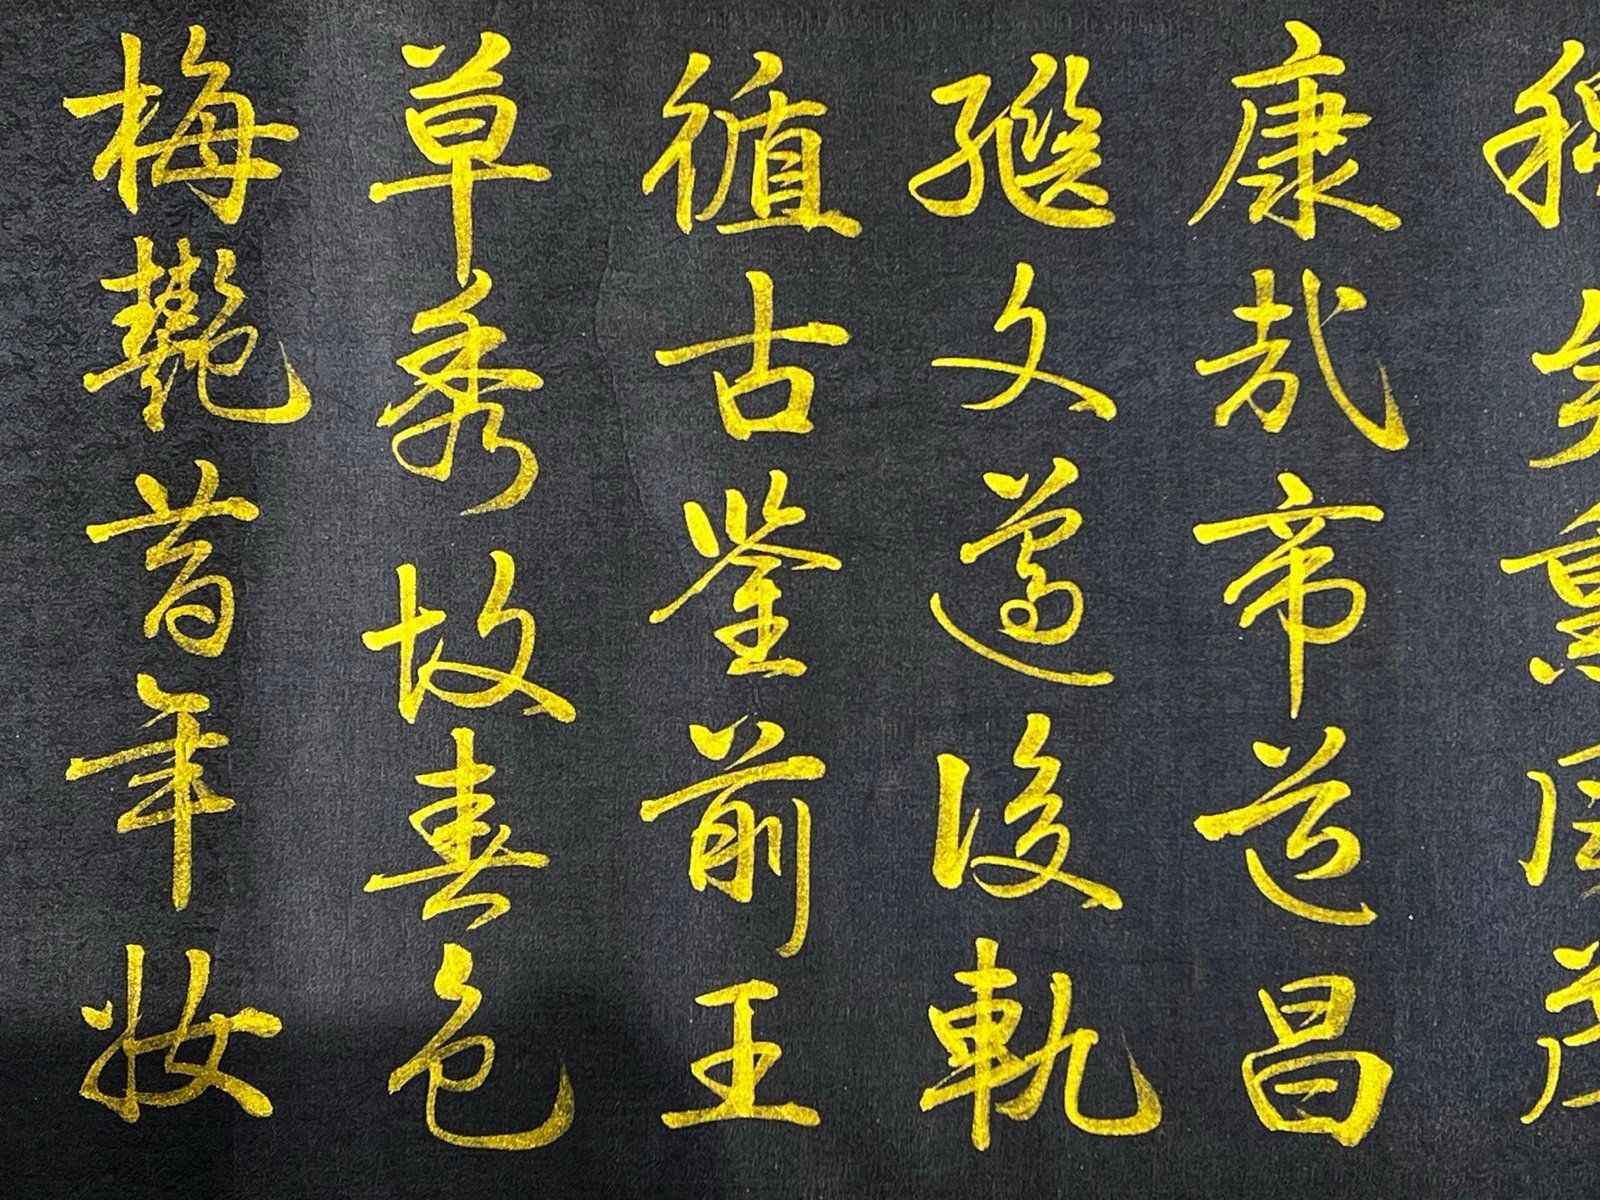 康哉帝道昌
繼文遵後軌
循古鑒前王
草秀故春色
梅艷昔年妝